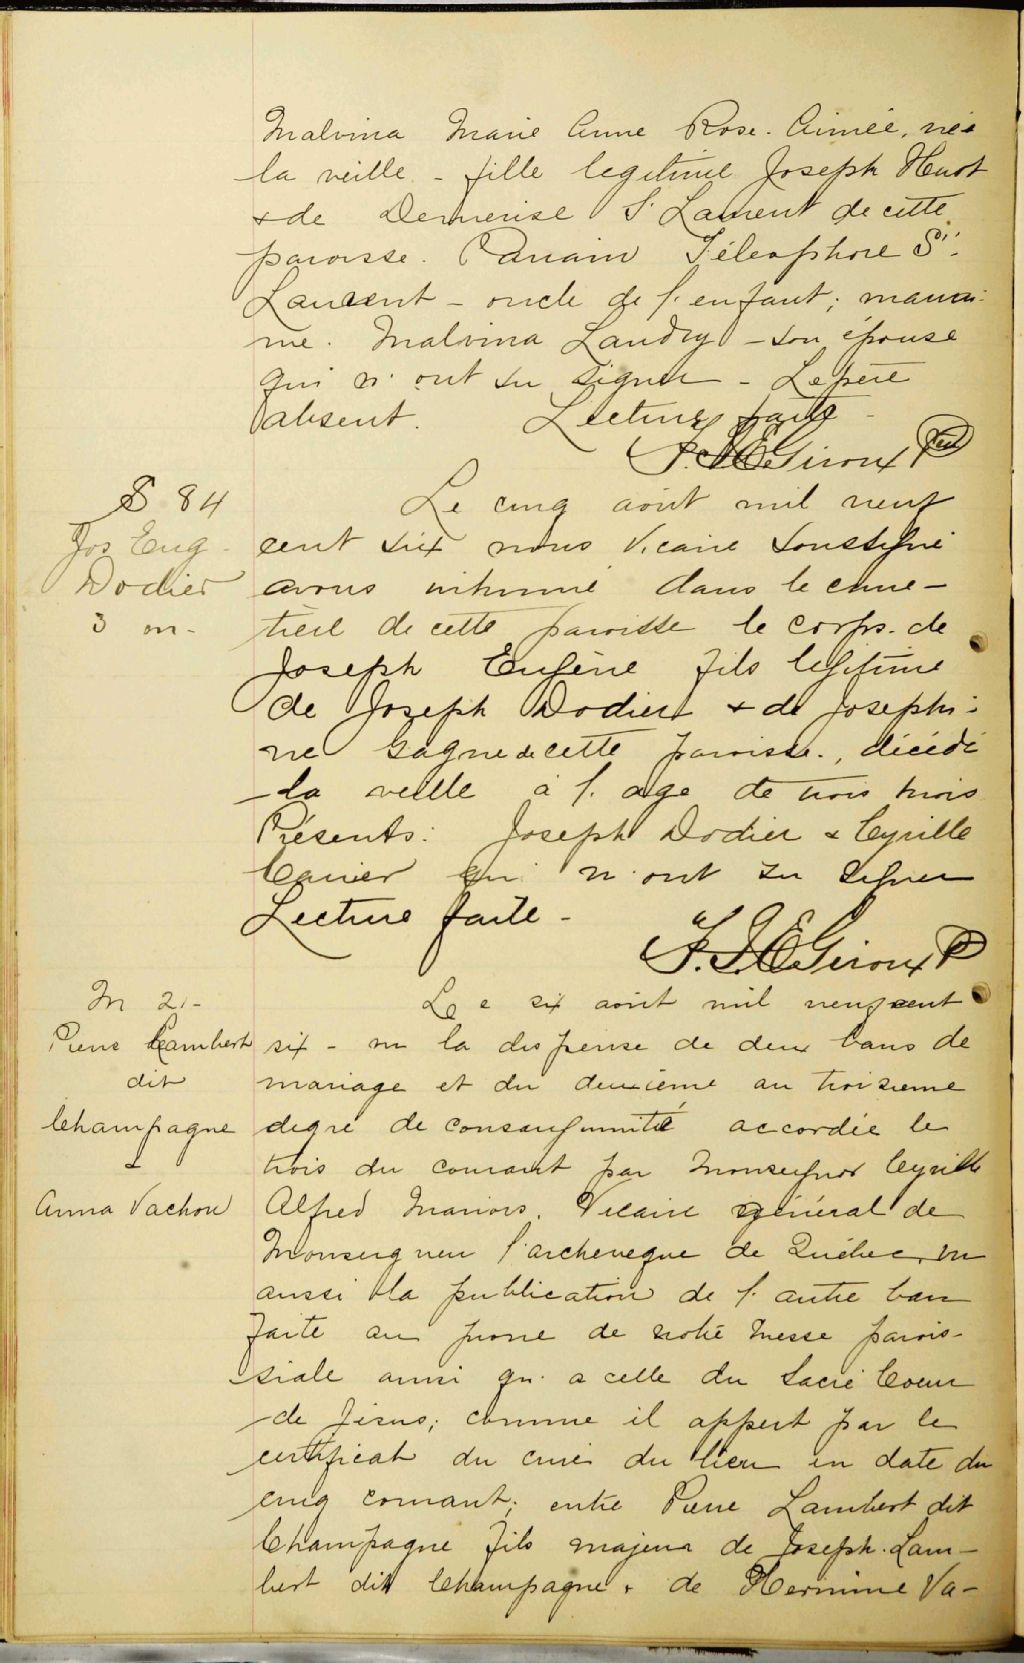 Malvina Marie Anne Rose-Aimée, née
la veille - fille legitime Joseph Huot
& de Demerise St Laurent de cette
paroisse. Parrain Télesphore St.
Laurent - oncle de l'enfant; marrai-
ne. Malvina Landry - son épouse
qui n'ont su signer - Le père
absent. Lecture faite -
F. J. E. Giroux Ptre
S 84
Jos Eug.
Dodier
3 m.
Le cinq août mil neuf
cent six nous Vicaire soussigné
avons inhumé dans le cime-
tière de cette paroisse le corps de
Joseph Eugène fils légitime
de Joseph Dodier & de Josephi-
ne Gagne de cette paroisse, décédé
la veille à l'age de trois mois
Présents: Joseph Dodier & Cyrille
qui n'ont su signer
Lecture faite -
F. J. E. Giroux P
M 21-
Pierre Lambert
dit
Champagne
&
Anna Vachon
Le six août mil neuf cent
six - vu la dispense de deux bans de
mariage et du deuxième au troisieme
degré de consanguinité accordée le
trois du courant par Monseignor Cyrille
Alfred Marois, Vicaire général de
Monseigneur l'archeveque de Québec, vu
aussi la publication de l'autre ban
faite au prone de notre messe parois-
siale ainsi qu'a celle du Sacré Coeur
de Jésus; comme il appert par le
certificat du curé du lieu en date du
cinq courant; entre Pierre Lambert dit
Champagne fils majeur de Joseph Lam-
bert dit Champagne & de Hermine Va-